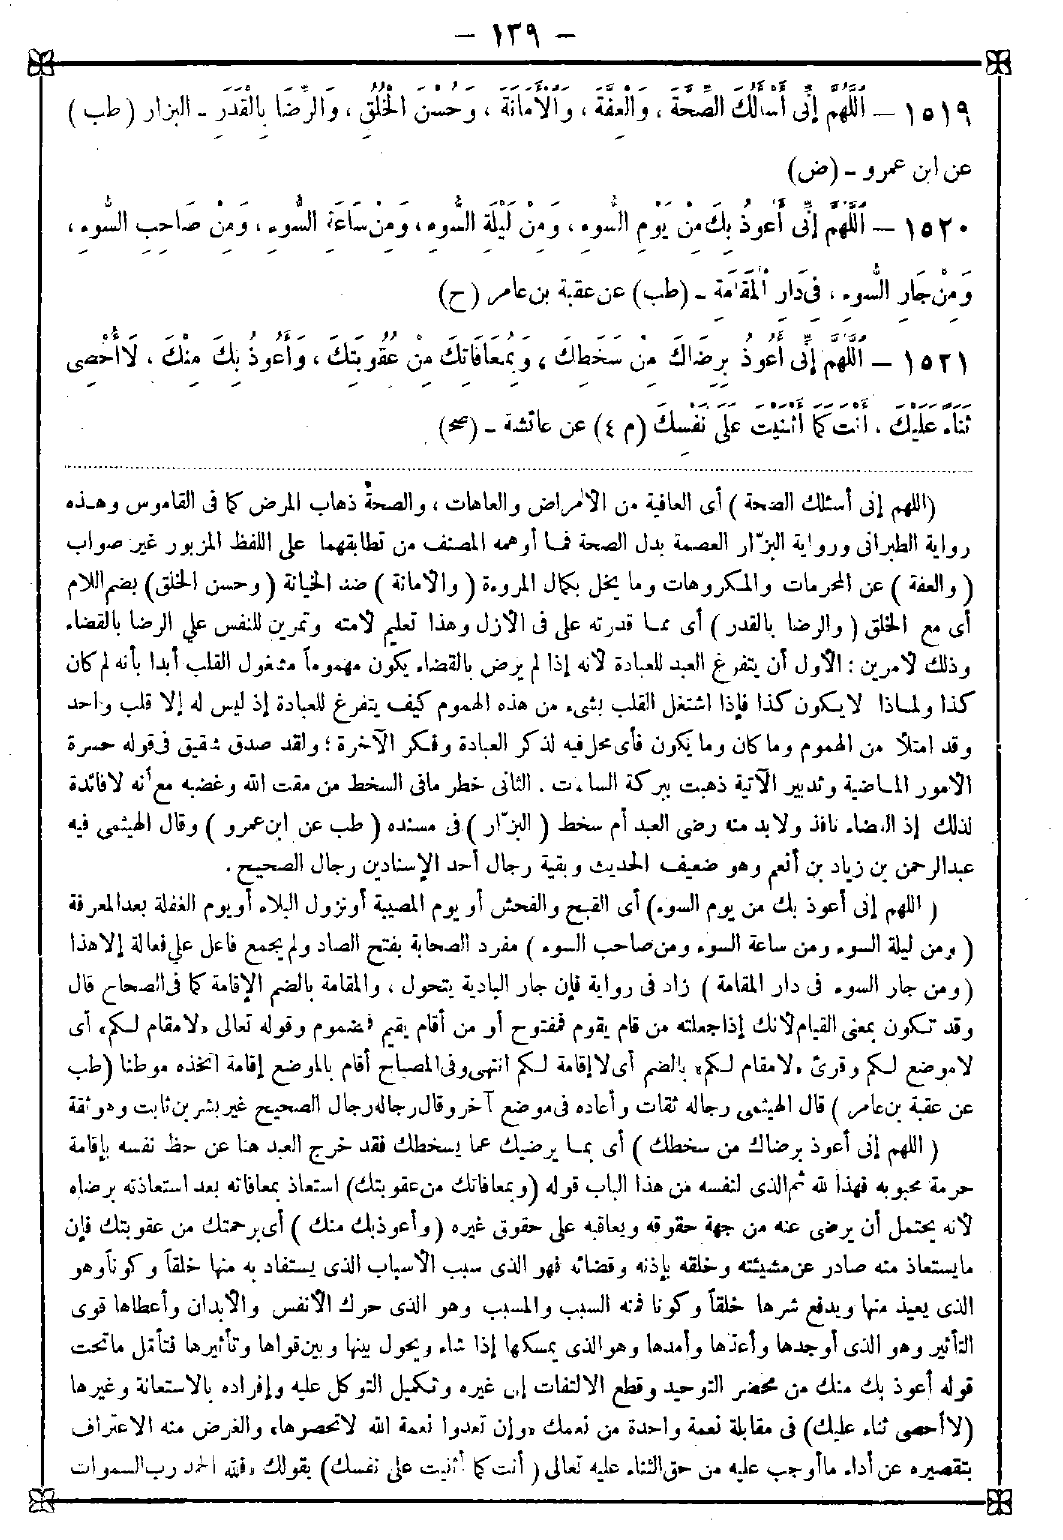 - ١٣٩ -
١٥١٩ - اَللّٰهُمَّ إِنِّي أَسْأَلُكَ الصِّحَّةَ ، وَالْعِفَّةَ ، وَالْأَمَانَةَ ، وَحُسْنَ الْخُلُقِ ، وَالرِّضَا بِالْقَدَرِ - البزار ( طب )
عن ابن عمرو - (ض)
١٥٢٠ - اَللّٰهُمَّ إِنِّي أَعُوذُ بِكَ مِنْ يَوْمِ السُّوءِ ، وَمِنْ لَيْلَةِ السُّوءِ ، وَمِنْ سَاعَةِ السُّوءِ ، وَمِنْ صَاحِبِ السُّوءِ ،
وَمِنْ جَارِ السُّوءِ ، فِي دَارِ الْمُقَامَةِ - (طب) عن عقبة بن عامر (ح)
١٥٢١ - اَللّٰهُمَّ إِنِّي أَعُوذُ بِرِضَاكَ مِنْ سَخَطِكَ ، وَبِمُعَافَاتِكَ مِنْ عُقُوبَتِكَ ، وَأَعُوذُ بِكَ مِنْكَ ، لَا أُحْصِي
ثَنَاءً عَلَيْكَ ، أَنْتَ كَمَا أَثْنَيْتَ عَلَى نَفْسِكَ (م ٤) عن عائشة - (صح)
(اللهم إني أسئلك الصحة ) أى العافية من الأمراض والعاهات ، والصحة ذهاب المرض كما فى القاموس وهذه
رواية الطبرانى ورواية البزّار العصمة بدل الصحة فما أوهمه المصنف من تطابقهما على اللفظ المزبور غير صواب
( والعفة ) عن المحرمات والمكروهات وما يخل بكمال المروءة ( والأمانة ) ضد الخيانة ( وحسن الخلق) بضم اللام
أى مع الخلق ( والرضا بالقدر ) أى بما قدرته على فى الأزل وهذا تعليم لأمته وتمرين للنفس على الرضا بالقضاء
وذلك لأمرين : الأول أن يتفرغ العبد للعبادة لأنه إذا لم يرض بالقضاء يكون مهموماً مشغول القلب أبدا بأنه لم كان
كذا ولماذا لايكون كذا فإذا اشتغل القلب بشىء من هذه الهموم كيف يتفرغ للعبادة إذ ليس له إلا قلب واحد
وقد امتلأ من الهموم وماكان ومايكون فأى محل فيه لذكر العبادة وفكر الآخرة ؛ ولقد صدق شقيق فى قوله حسرة
الأمور الماضية وتدبير الآتية ذهبت ببركة الساعات . الثانى خطر مافى السخط من مقت الله وغضبه مع أنه لا فائدة
لذلك إذ القضاء نافذ ولابد منه رضى العبد أم سخط ( البزّار ) فى مسنده ( طب عن ابن عمرو ) وقال الهيثمى فيه
عبدالرحمن بن زياد بن أنعم وهو ضعيف الحديث وبقية رجال أحد الإسنادين رجال الصحيح .
( اللهم إنى أعوذ بك من يوم السوء) أى القبح والفحش أو يوم المصيبة أونزول البلاء أويوم الغفلة بعدالمعرفة
( ومن ليلة السوء ومن ساعة السوء ومن صاحب السوء ) مفرد الصحابة بفتح الصاد ولم يجمع فاعل على فعالة إلا هذا
( ومن جار السوء فى دار المقامة ) زاد فى رواية فإن جار البادية يتحول ، والمقامة بالضم الإقامة كما فى الصحاح قال
وقد تكون بمعنى القيام لأنك إذا جعلته من قام يقوم فمفتوح أو من أقام يقيم فمضموم وقوله تعالى «لامقام لكم» أى
لاموضع لكم وقرئ «لامقام لكم» بالضم أى لا إقامة لكم انتهى وفى المصباح أقام بالموضع إقامة اتخذه موطنا (طب
عن عقبة بن عامر ) قال الهيثمى رجاله ثقات وأعاده فى موضع آخر وقال رجاله رجال الصحيح غير بشر بن ثابت وهو ثقة
( اللهم إنى أعوذ برضاك من سخطك ) أى بما يرضيك عما يسخطك فقد خرج العبد هنا عن حظ نفسه بإقامة
حرمة محبوبه فهذا لله ثم الذى لنفسه من هذا الباب قوله (وبمعافاتك من عقوبتك) استعاذ بمعافاته بعد استعاذته برضاه
لأنه يحتمل أن يرضى عنه من جهة حقوقه ويعاقبه على حقوق غيره ( وأعوذ بك منك ) أى برحمتك من عقوبتك فإن
مايستعاذ منه صادر عن مشيئته وخلقه بإذنه وقضائه فهو الذى سبب الأسباب الذى يستفاد به منها خلقاً وكوناً وهو
الذى يعيذ منها ويدفع شرها خلقاً وكونا فمنه السبب والمسبب وهو الذى حرك الأنفس والأبدان وأعطاها قوى
التأثير وهو الذى أوجدها وأعدّها وأمدها وهو الذى يمسكها إذا شاء ويحول بينها وبين قواها وتأثيرها فتأمّل ماتحت
قوله أعوذ بك منك من محضر التوحيد وقطع الالتفات إلى غيره وتكميل التوكل عليه وإفراده بالاستعانة وغيرها
(لا أحصى ثناء عليك) فى مقابلة نعمة واحدة من نعمك «وإن تعدوا نعمة الله لاتحصوها» والغرض منه الاعتراف
بتقصيره عن أداء ما أوجب عليه من حق الثناء عليه تعالى ( أنت كما أثنيت على نفسك) بقولك «فلله الحمد رب السموات